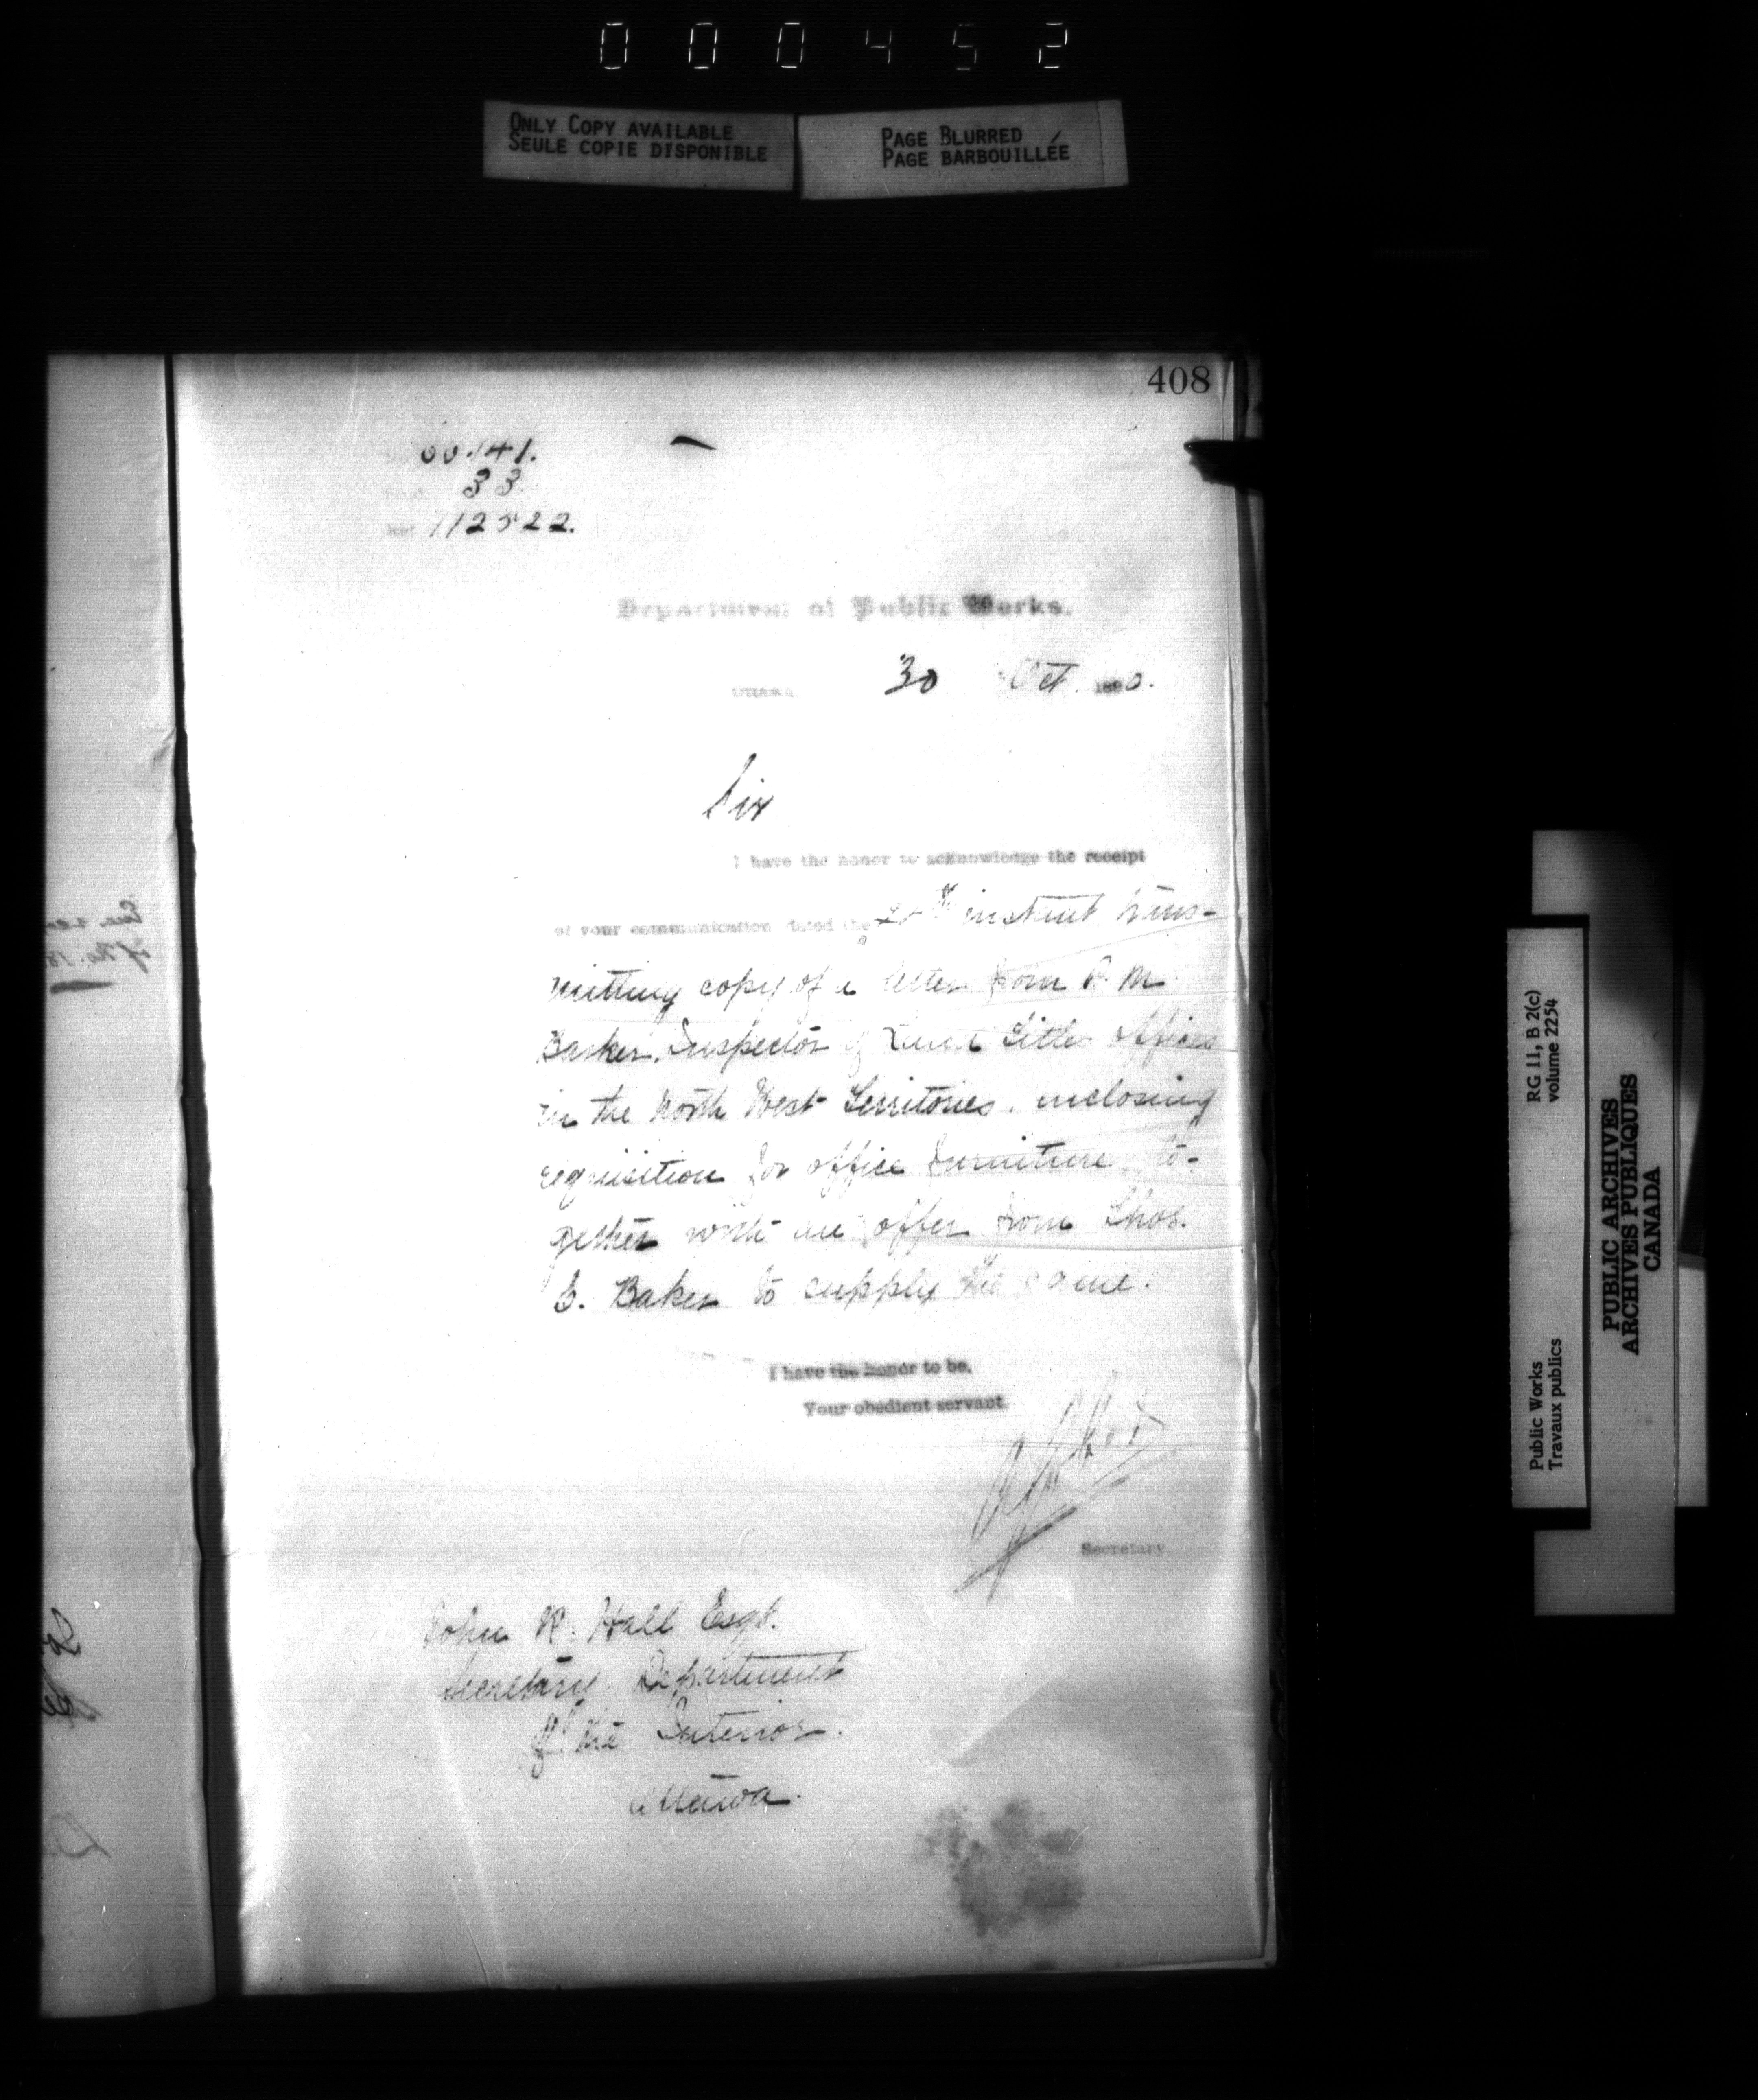 000452
ONLY COPY AVAILABLE
SEULE COPIE DISPONIBLE
PAGE BLURRED
PAGE BARBOUILLÉE
408
141.
33
Ref 112522.
Department of Public Works.
OTTAWA 30 Oct. 1890.
Sir
I have the honor to acknowledge the receipt
of your communication dated the instant trans-
mitting copy of a letter from P. M.
Barker, Inspector of Land Titles offices
in the North West Territories, inclosing
requisition for office furniture to-
gether with an offer from Thos.
C. Baker to supply the same.
I have the honor to be,
Your obedient servant.
Secretary
John R. Hall Esqr.
Secretary Department
of the Interior.
Ottawa.
RG 11, B 2(c)
volume 2254
Public Works
Travaux publics
PUBLIC ARCHIVES
ARCHIVES PUBLIQUES
CANADA